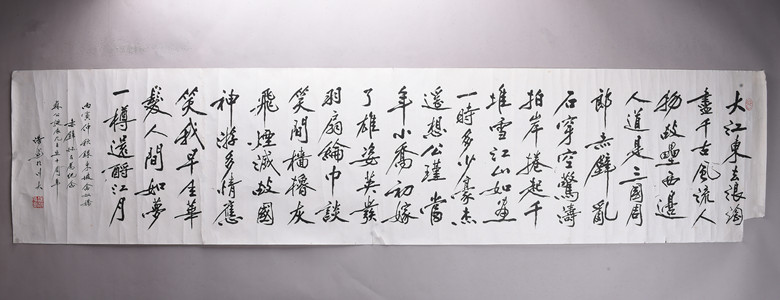 大江東去浪淘
盡千古風流人
物故壘西邊
人道是三國周
郎赤壁亂
石穿空驚濤
拍岸捲起千
堆雪江山如畫
一時多少豪杰
遥想公瑾當
年小喬初嫁
了雄姿英發
羽扇綸巾談
笑間檣櫓灰
飛煙滅故國
神游多情應
笑我早生華
髮人間如夢
一樽還酹江月
丙寅仲秋錄東坡念奴嬌
赤壁紀念
誕辰九百五十周年